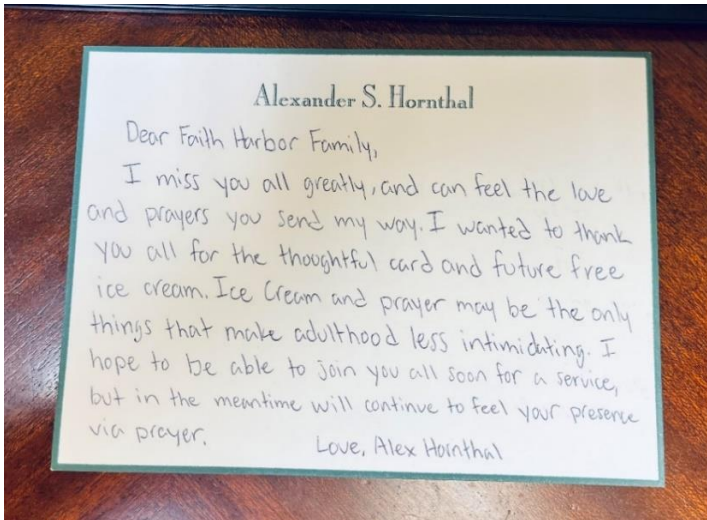 Alexander S. Hornthal
Dear Faith Harbor Family,
I miss you all greatly, and can feel the love
and prayers you send my way. I wanted to thank
you all for the thoughtful card and future free
ice cream. Ice Cream and prayer may be the only
things that make adulthood less intimidating. I
hope to be able to join you all soon for a service,
but in the meantime will continue to feel your presence
via prayer.
Love, Alex Hornthal